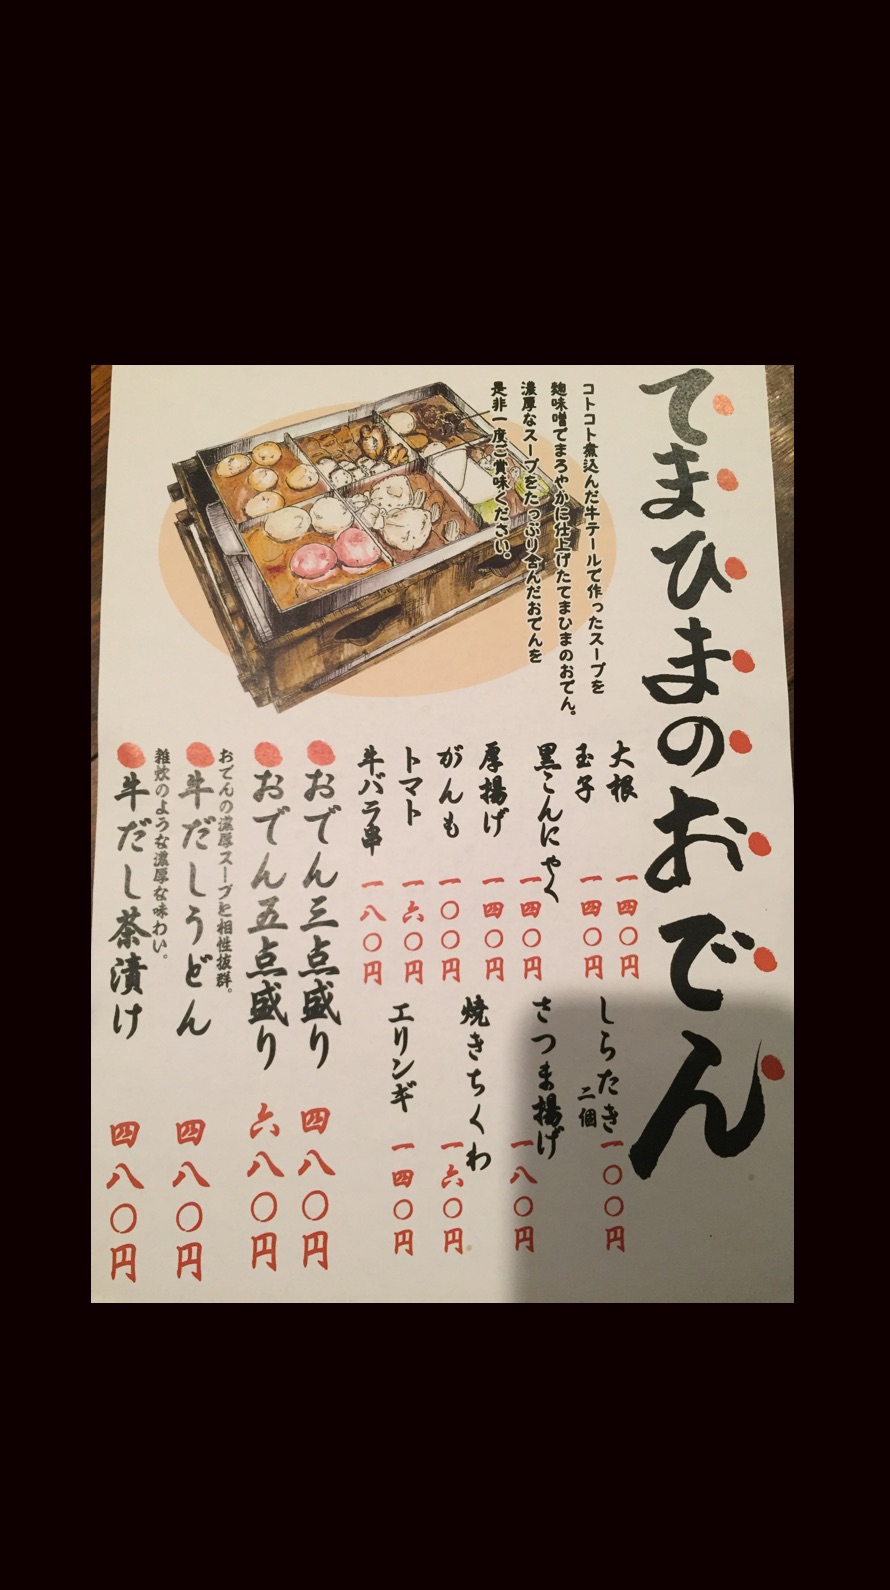 てまひまのおでん
コトコト煮込んだ牛テールで作ったスープを
麹味噌でまろやかに仕上げたてまひまのおでん。
濃厚なスープをたっぷり含んだおでんを
是非一度ご賞味ください。
大根 一四〇円
玉子 一四〇円
黒こんにゃく 一四〇円
厚揚げ 一四〇円
がんも 一〇〇円
トマト 一六〇円
牛バラ串 一八〇円
しらたき 二個 一〇〇円
さつま揚げ 一八〇円
焼きちくわ 一六〇円
エリンギ 一四〇円
おでん三点盛り 四八〇円
おでん五点盛り 六八〇円
おでんの濃厚スープと相性抜群。
牛だしうどん 四八〇円
雑炊のような濃厚な味わい。
牛だし茶漬け 四八〇円